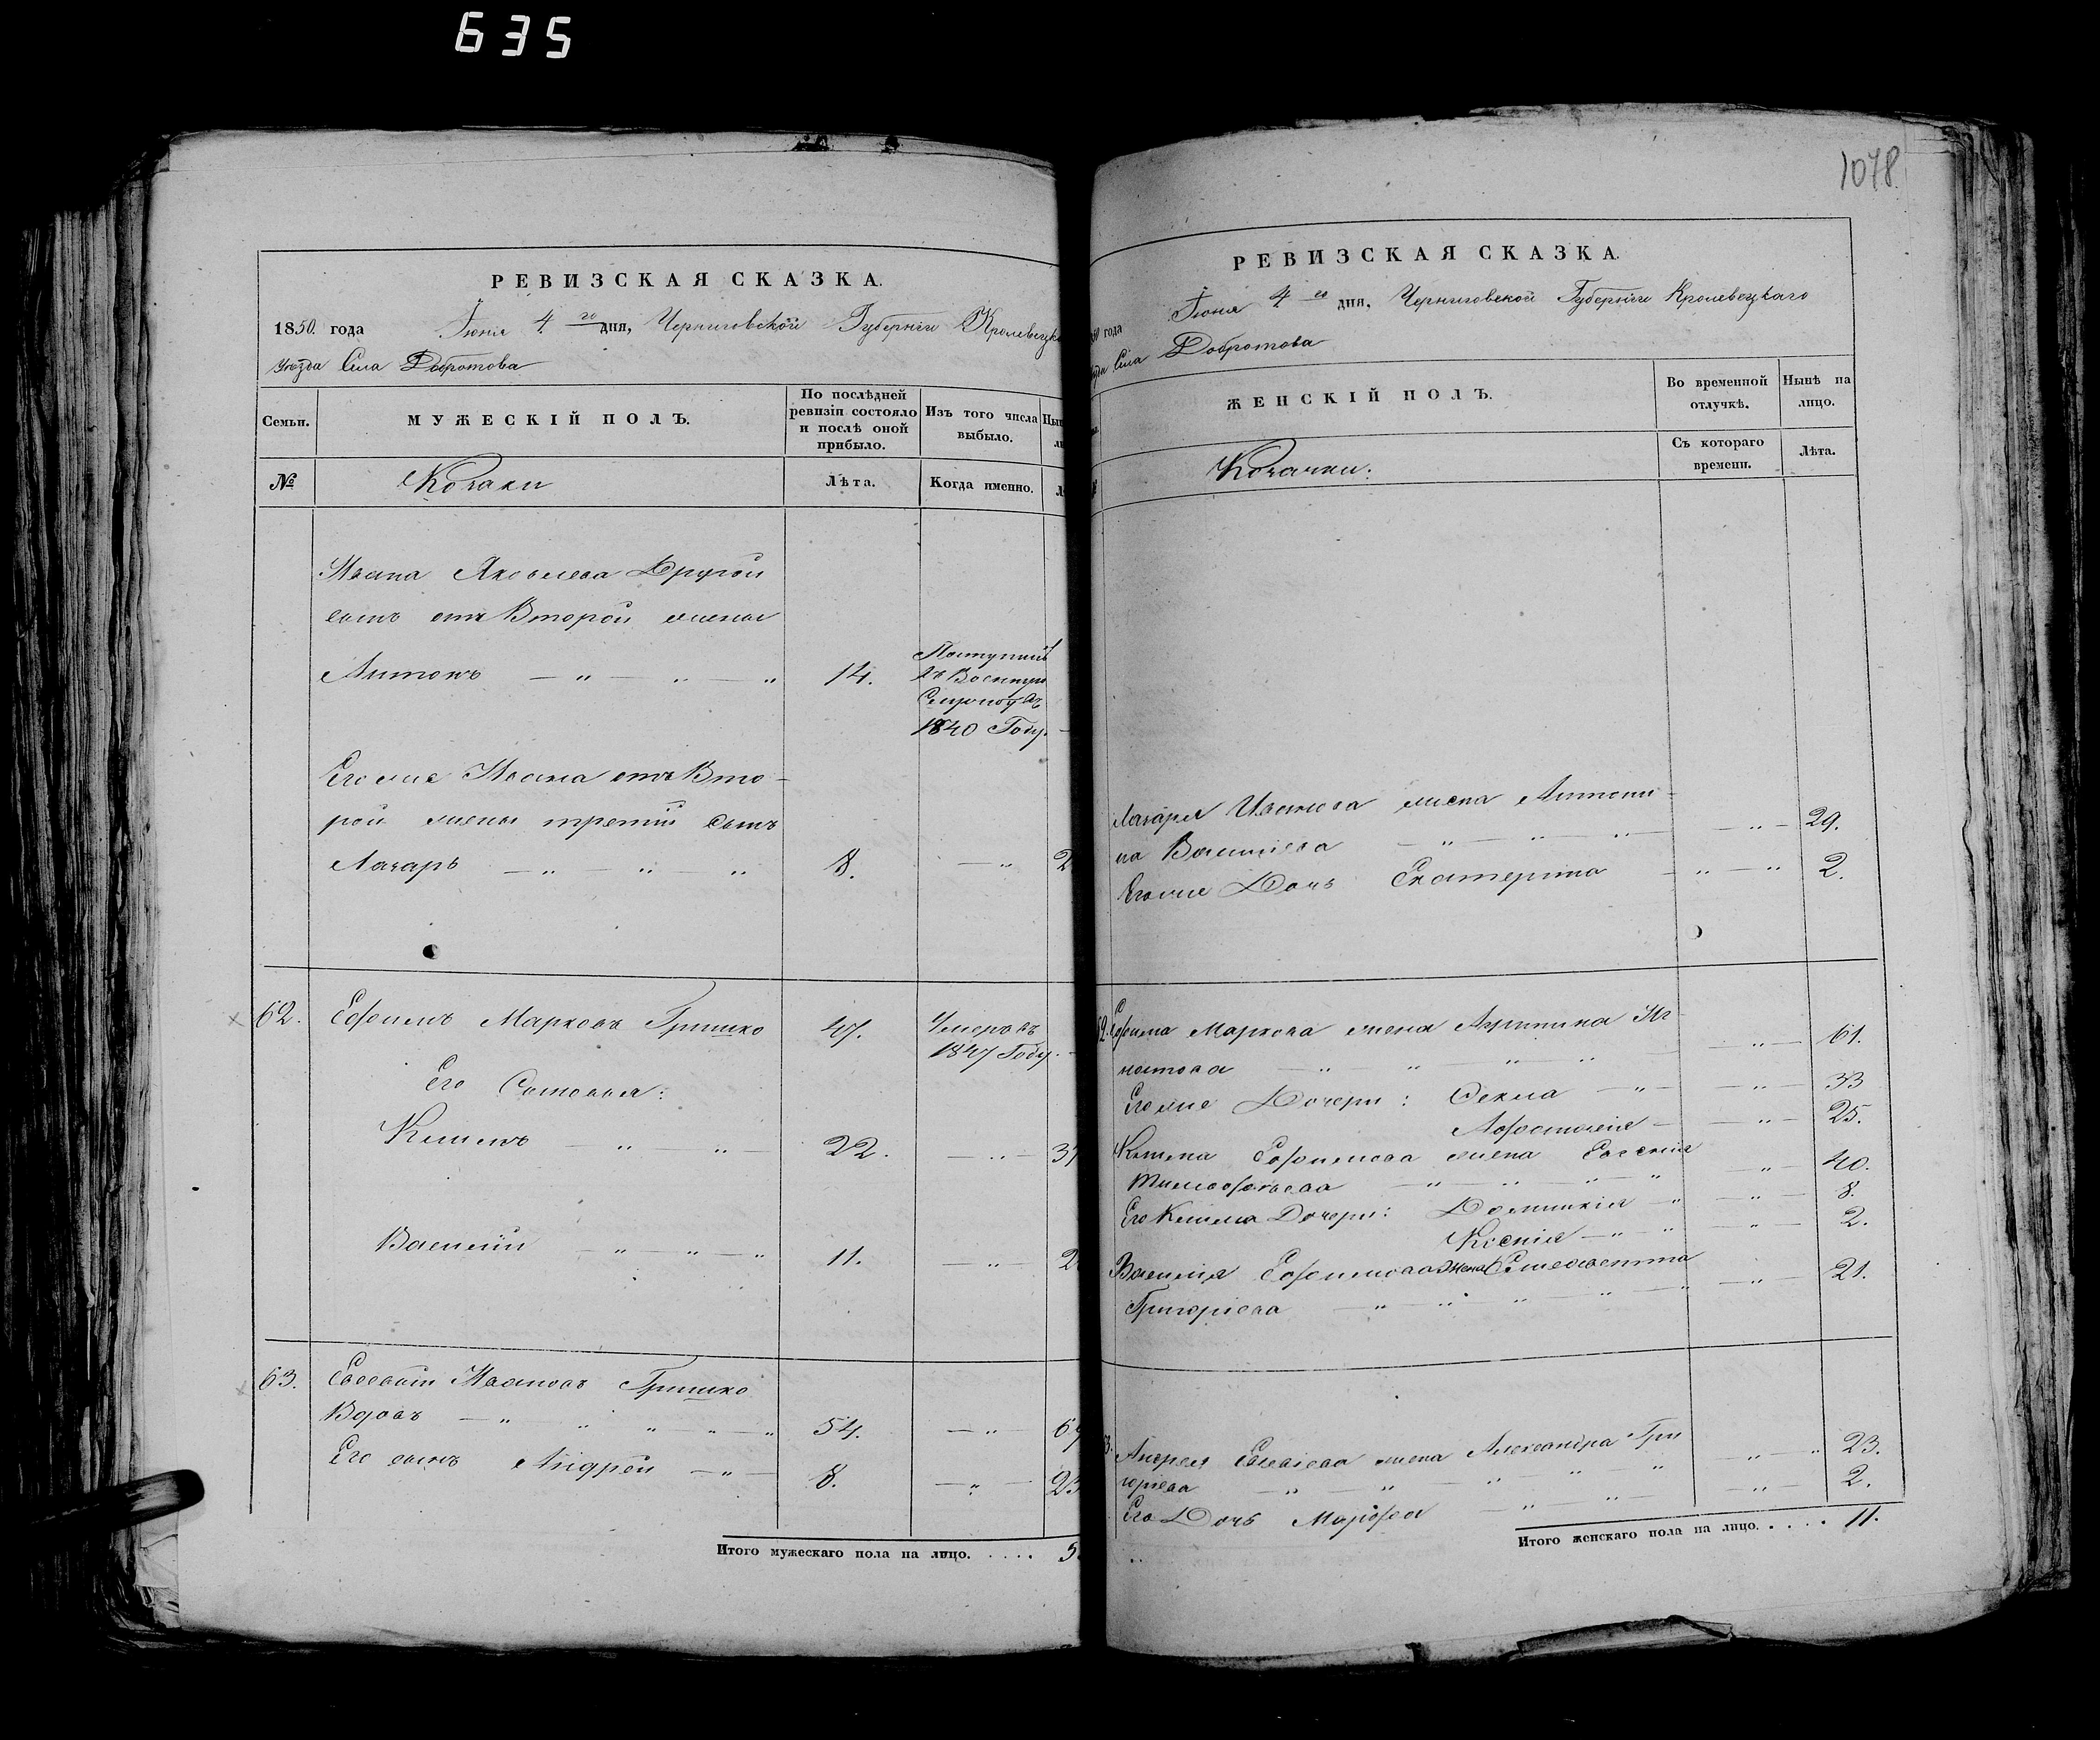 635
1078.
РЕВИЗСКАЯ СКАЗКА.
1850. года Іюня 4 го дня, Черниговской Губерніи Кролевецка
Уѣзда Села Добротова
Семьи.
МУЖЕСКІЙ ПОЛЪ.
По послѣдней ревизіи состояло и послѣ оной прибыло.
Изъ того числа выбыло.
№
Козаки
Лѣта.
Когда именно.
Ивана Яковлева Другой
сынъ отъ Второй жены
Антонъ 14. Поступилъ
въ Военную
Службу въ
1840 Году.
Его же Ивана отъ Вто-
рой жены третій сынъ
Лазарь 8. 2
62. Ефимъ Марковъ Гришко 47. Умеръ въ
1847 Году.
Его Сыновья:
22. 37
Василій 11. 2
63. Ивановъ Гришко
Вдовъ 54. 69
Его сынъ Андрей 8. 23
Итого мужескаго пола на лицо. . . . . 5
РЕВИЗСКАЯ СКАЗКА.
года Іюня 4 го дня, Черниговской Губерніи Кролевецкаго
Села Добротова
ЖЕНСКІЙ ПОЛЪ.
Во временной отлучкѣ.
Нынѣ на лицо.
Козачки:
Съ котораго времени.
Лѣта.
Лазаря Иванова жена Антони-
на Васильева 29.
Его же Дочь Екатерина 2.
Ефима Маркова жена Агрипина Иг
натова 61.
Его же Дочери: Фекла 33
Афанасія 25.
Ефимова жена Евгенія
Тимофѣева 40.
Его Дочери: Домникія 8.
Ксенія 2.
Василія Ефимова Жена Елисавета
Григоріева 21.
63. Андрея жена Александра Гри
горіева 23.
Его Дочь Марфа 2.
Итого женскаго пола на лицо. . . . . 11.